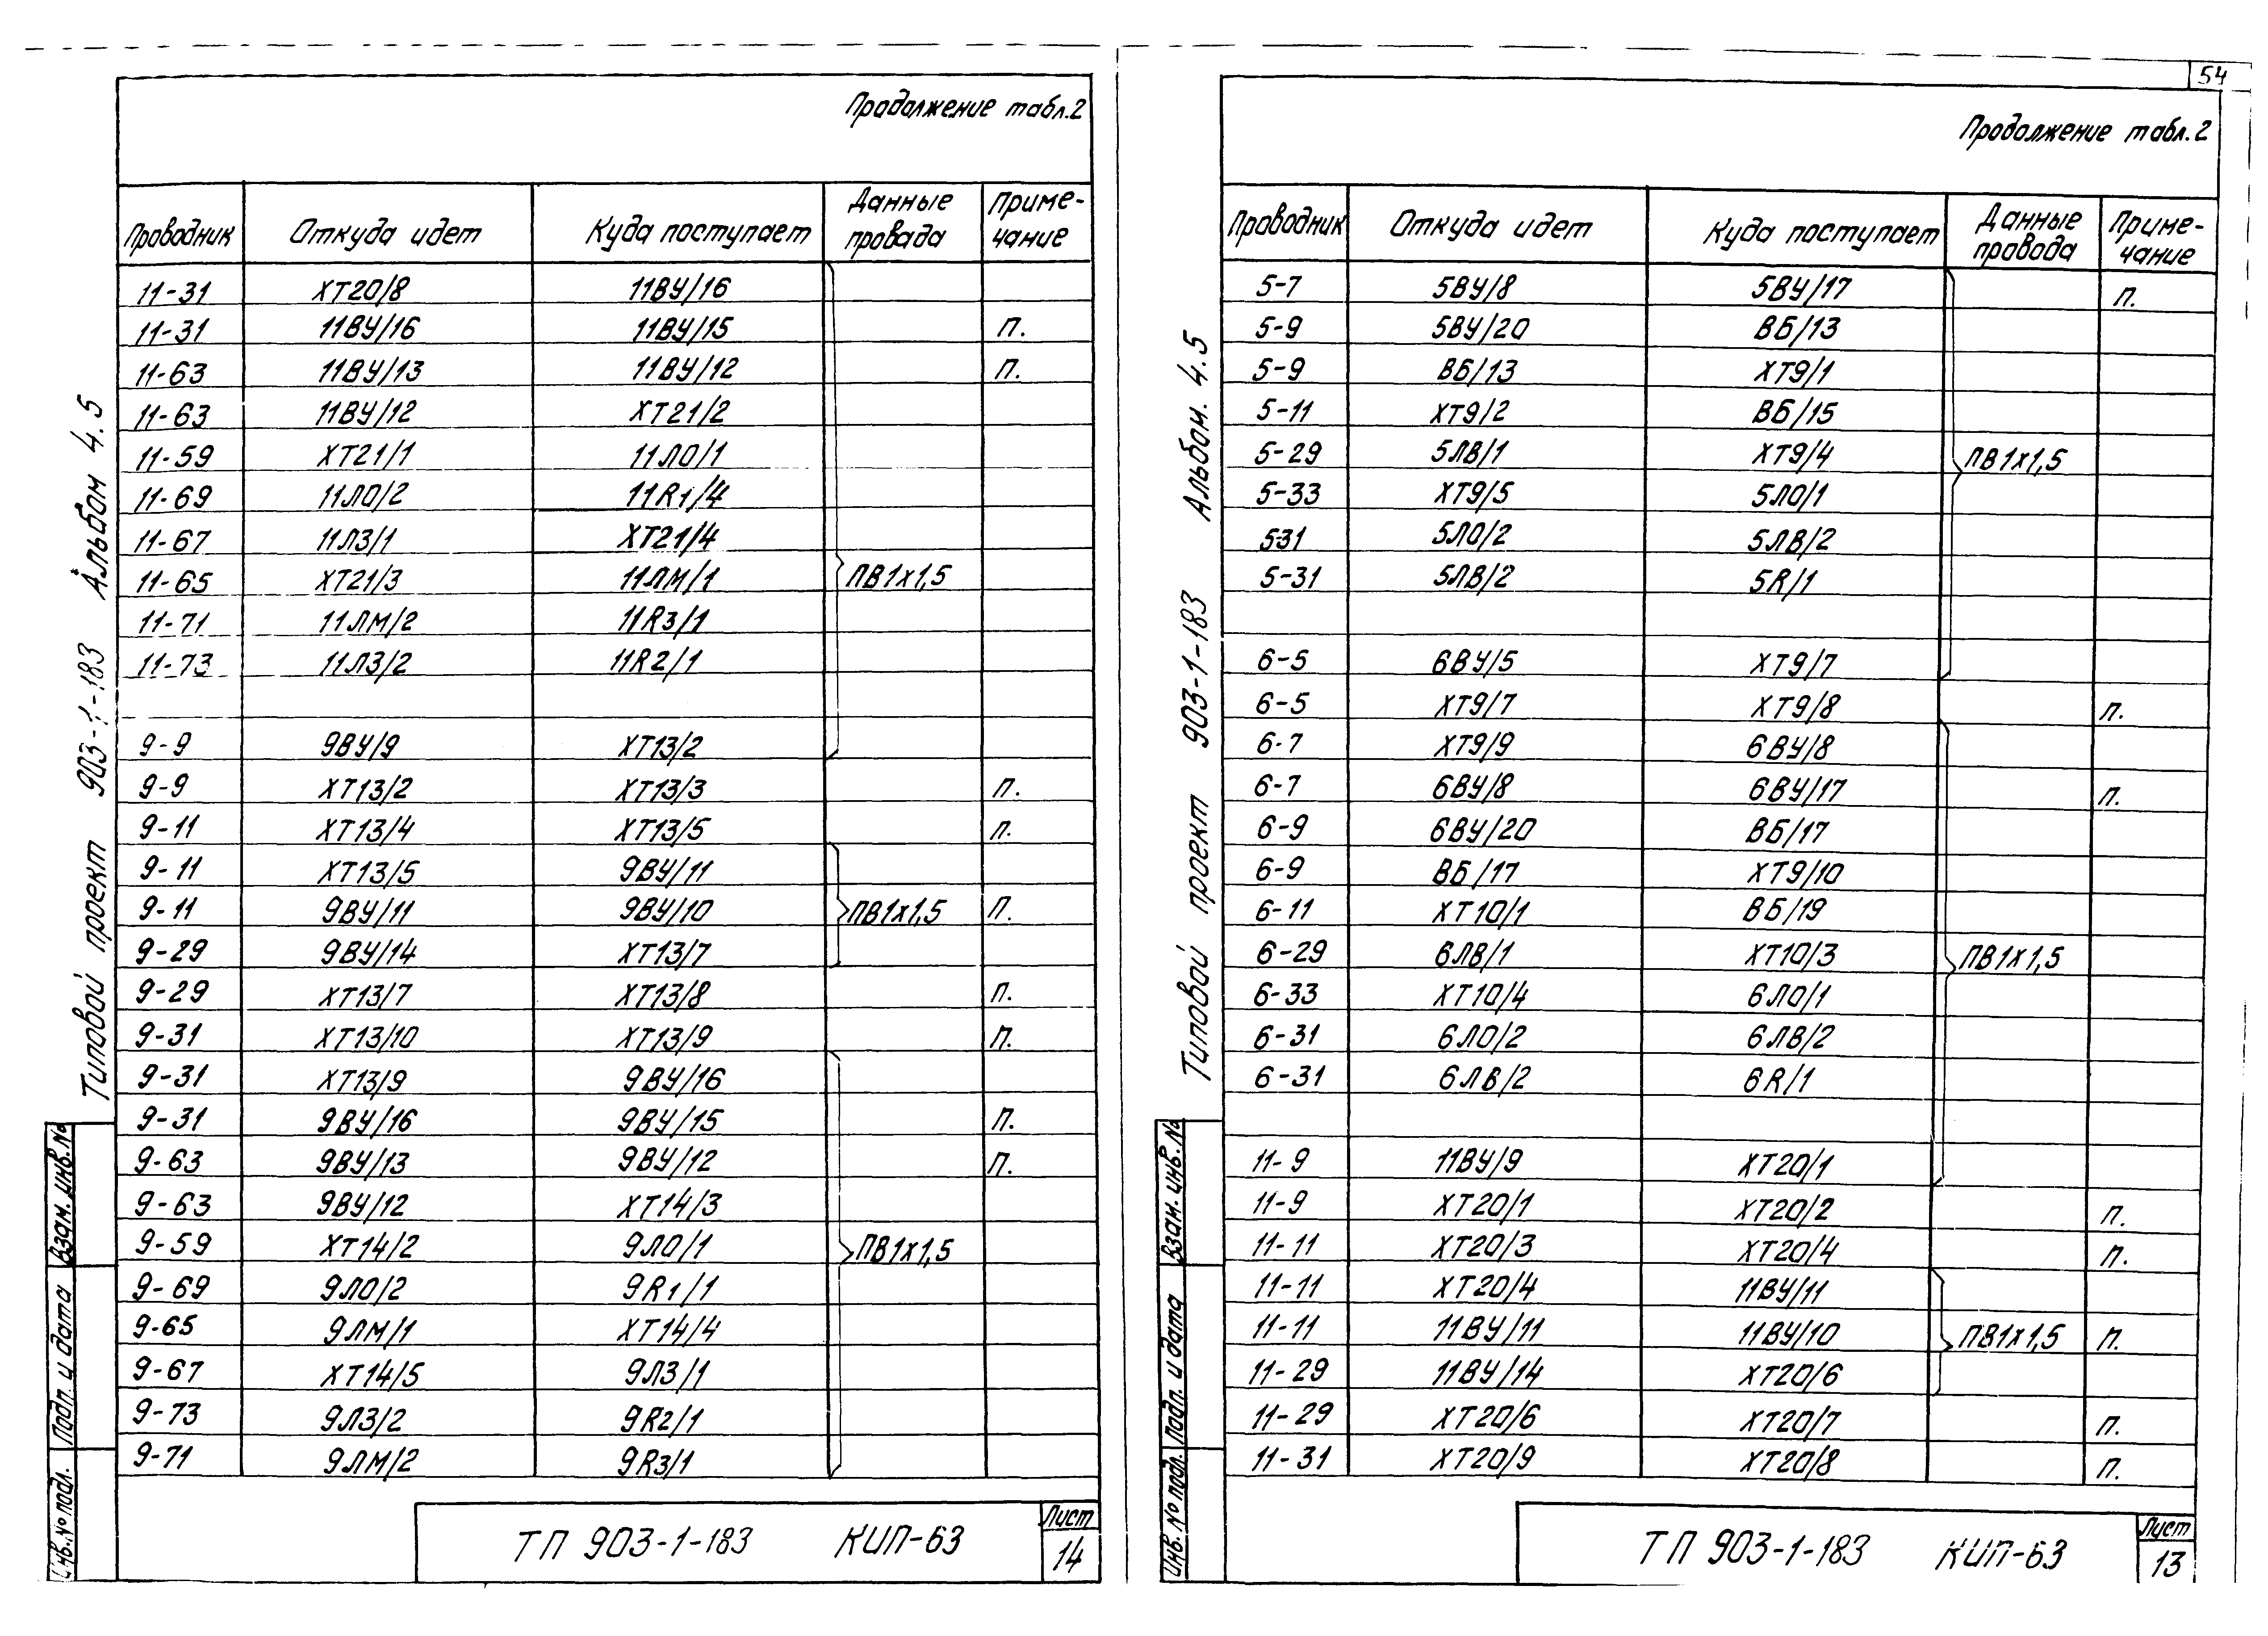 54
Продолжение табл.2
Проводник Откуда идет Куда поступает Данные провода Приме-чание
11-31 ХТ20/8 11ВУ/16
11-31 11ВУ/16 11ВУ/15 п.
11-63 11ВУ/13 11ВУ/12 п.
11-63 11ВУ/12 ХТ21/2
11-59 ХТ21/1 11ЛО/1
11-69 11ЛО/2 11R1/4
11-67 11ЛЗ/1 ХТ21/4
11-65 ХТ21/3 11ЛМ/1 ПВ1х1,5
11-71 11ЛМ/2 11R3/1
11-73 11ЛЗ/2 11R2/1
9-9 9ВУ/9 ХТ13/2
9-9 ХТ13/2 ХТ13/3 п.
9-11 ХТ13/4 ХТ13/5 п.
9-11 ХТ13/5 9ВУ/11
9-11 9ВУ/11 9ВУ/10 ПВ1х1,5 п.
9-29 9ВУ/14 ХТ13/7
9-29 ХТ13/7 ХТ13/8 п.
9-31 ХТ13/10 ХТ13/9 п.
9-31 ХТ13/9 9ВУ/16
9-31 9ВУ/16 9ВУ/15 п.
9-63 9ВУ/13 9ВУ/12 п.
9-63 9ВУ/12 ХТ14/3
9-59 ХТ14/2 9ЛО/1 ПВ1х1,5
9-69 9ЛО/2 9R1/1
9-65 9ЛМ/1 ХТ14/4
9-67 ХТ14/5 9ЛЗ/1
9-73 9ЛЗ/2 9R2/1
9-71 9ЛМ/2 9R3/1
ТП 903-1-183 КИП-63
Лист
14
Типовой проект 903-1-183 Альбом 4.5
Взам. инв.№
Подп. и дата
Инв.№ подл.
Продолжение табл.2
Проводник Откуда идет Куда поступает Данные провода Приме-чание
5-7 5ВУ/8 5ВУ/17 п.
5-9 5ВУ/20 ВБ/13
5-9 ВБ/13 ХТ9/1
5-11 ХТ9/2 ВБ/15
5-29 5ЛВ/1 ХТ9/4 ПВ1х1,5
5-33 ХТ9/5 5ЛО/1
531 5ЛО/2 5ЛВ/2
5-31 5ЛВ/2 5R/1
6-5 6ВУ/5 ХТ9/7
6-5 ХТ9/7 ХТ9/8 п.
6-7 ХТ9/9 6ВУ/8
6-7 6ВУ/8 6ВУ/17 п.
6-9 6ВУ/20 ВБ/17
6-9 ВБ/17 ХТ9/10
6-11 ХТ10/1 ВБ/19
6-29 6ЛВ/1 ХТ10/3 ПВ1х1,5
6-33 ХТ10/4 6ЛО/1
6-31 6ЛО/2 6ЛВ/2
6-31 6ЛВ/2 6R/1
11-9 11ВУ/9 ХТ20/1
11-9 ХТ20/1 ХТ20/2 п.
11-11 ХТ20/3 ХТ20/4 п.
11-11 ХТ20/4 11ВУ/11
11-11 11ВУ/11 11ВУ/10 ПВ1х1,5 п.
11-29 11ВУ/14 ХТ20/6
11-29 ХТ20/6 ХТ20/7 п.
11-31 ХТ20/9 ХТ20/8 п.
ТП 903-1-183 КИП-63
Лист
13
Типовой проект 903-1-183 Альбом. 4.5
Взам. инв.№
Подп. и дата
Инв.№ подл.